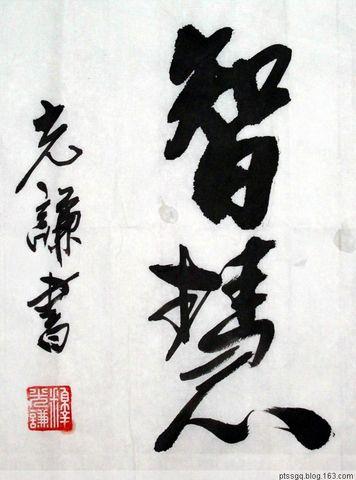 智慧
光謙書
ptssgq.blog.163.com